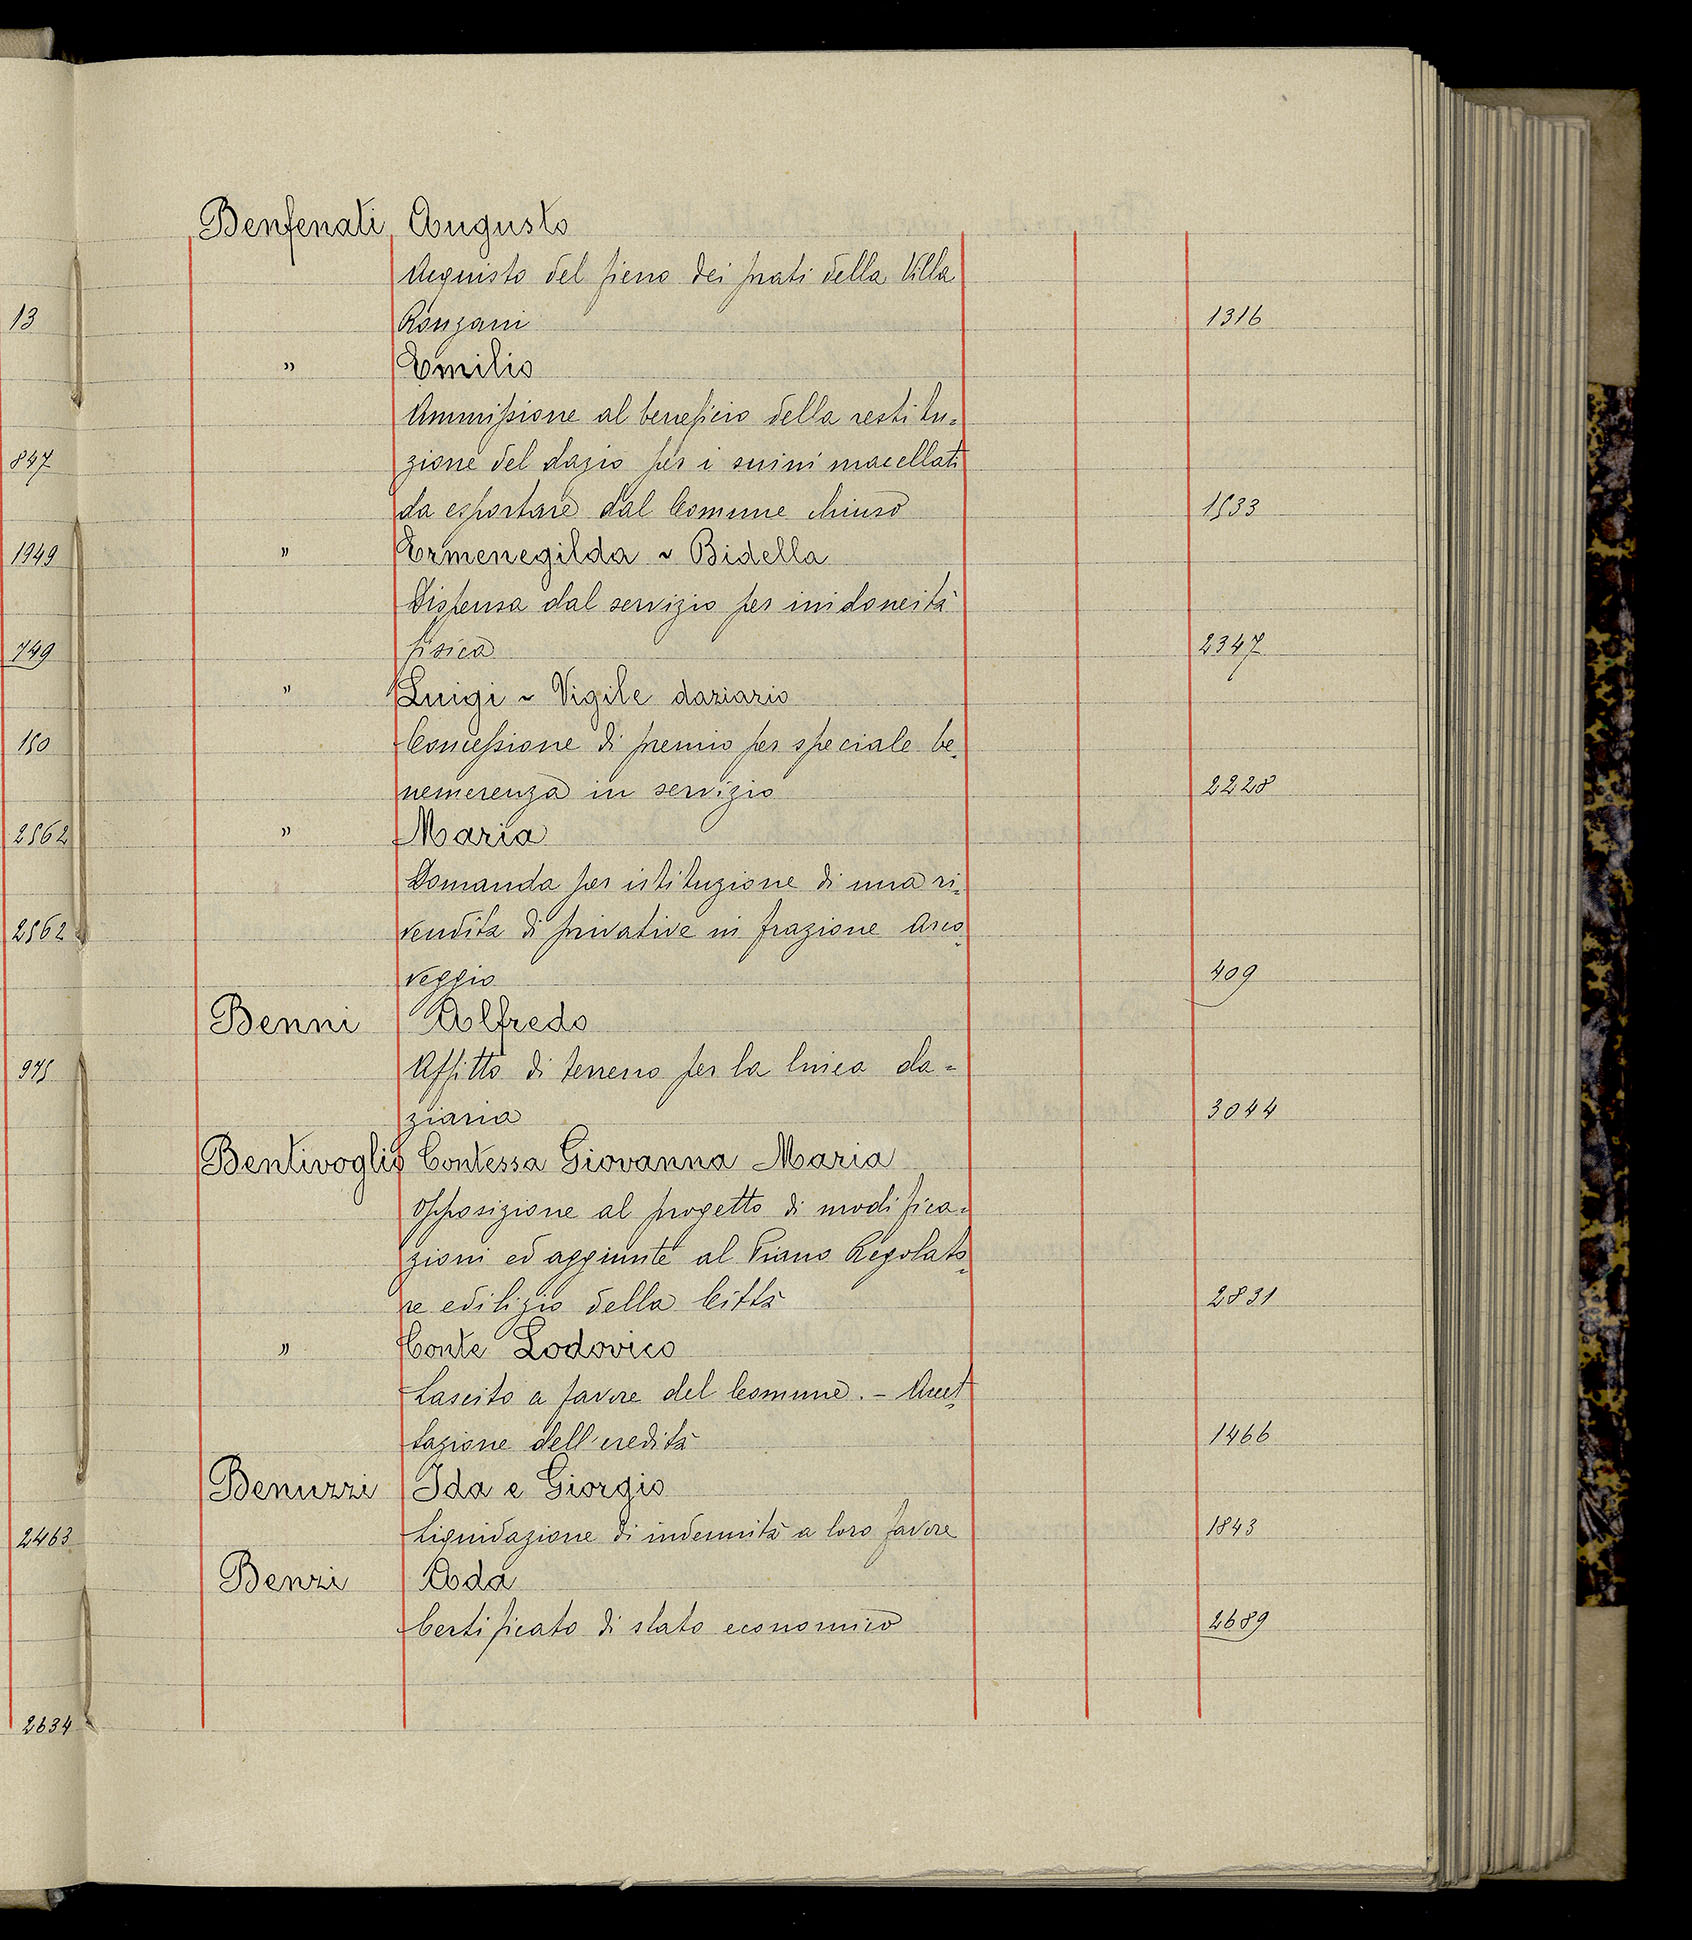 Benfenati Augusto
Acquisto del fieno dei prati della Villa
13 Ronzani 1316
" Emilio
Ammissione al beneficio della restitu=
847 zione del dazio per i suini macellati
da esportare dal Comune chiuso 1533
1949 " Ermenegilda ~ Bidella
Dispensa dal servizio per inidoneità
749 fisica 2347
" Luigi ~ Vigile daziario
150 Concessione di premio per speciale be=
nemerenza in servizio 2228
2562 " Maria
Domanda per istituzione di una ri=
2562 vendita di privative in frazione Arco=
veggio 409
Benni Alfredo
975 Affitto di terreno per la linea da=
ziaria 3044
Bentivoglio Contessa Giovanna Maria
Opposizione al progetto di modifica=
zioni ed aggiunte al Piano Regolato=
re edilizio della Città 2831
" Conte Lodovico
Lascito a favore del Comune. - Accet=
tazione dell'eredità 1466
Benuzzi Ida e Giorgio
2463 Liquidazione di indennità a loro favore 1843
Benzi Ada
Certificato di stato economico 2689
2634